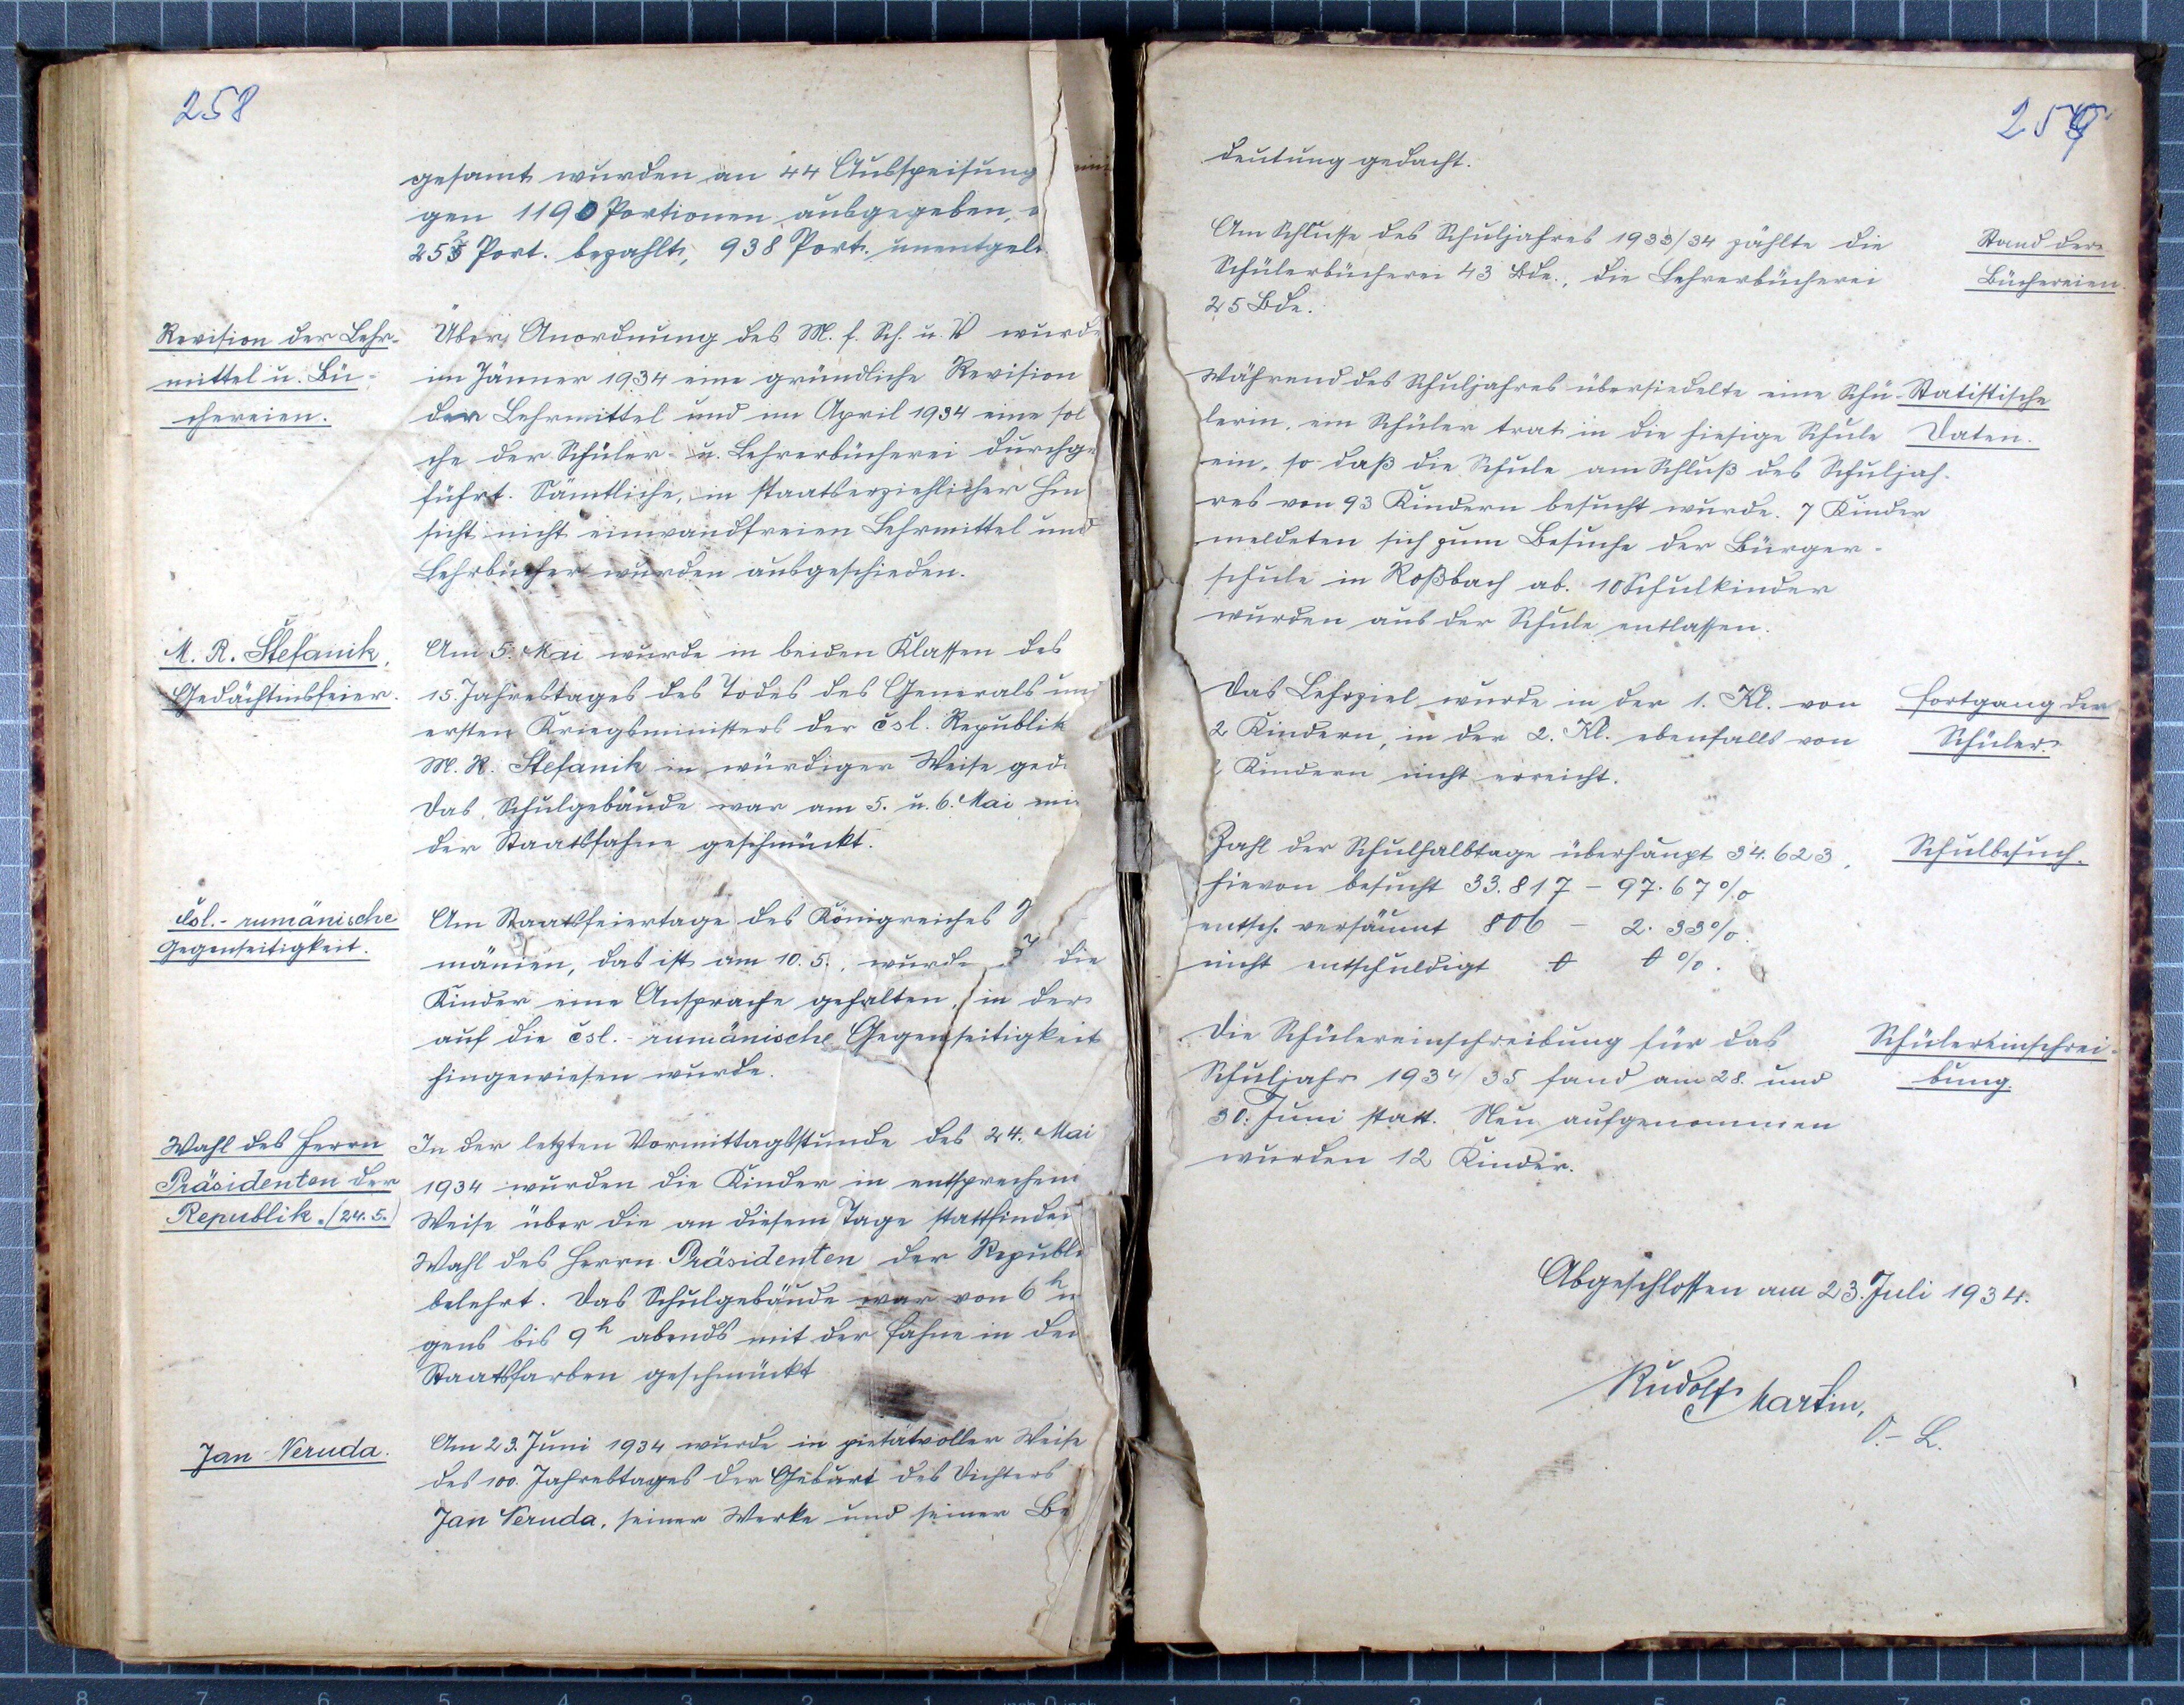 258
gesamt wurden an 44 Ausspeisung
gen 1190 Portionen ausgegeben,
252 Port. bezahlt, 938 Port. unentgelt
Revision der Lehr-
mittel u. Bü-
chereien.
Über Anordnung des M. f. Sch. u. V wurde
im Jänner 1934 eine gründliche Revision
der Lehrmittel und im April 1934 eine sol
che der Schüler- u. Lehrerbücherei durchge
führt. Sämtliche, in staatserziehlicher Hin
sicht nicht einwandfreien Lehrmittel und
Lehrbücher wurden ausgeschieden.
M. R. Štefanik,
Gedächtnisfeier.
Am 5. Mai wurde in beiden Klassen des
15. Jahrestages des Todes des Generals und
ersten Kriegsministers der čsl. Republik
M. R. Štefanik in würdiger Weise ged
Das Schulgebäude war am 5. u. 6. Mai mi
der Staatsfahne geschmückt.
Čsl.-rumänische
Gegenseitigkeit.
Am Staatsfeiertage des Königreiches
mänien, das ist am 10. 5., wurde die
Kinder eine Ansprache gehalten, in der
auf die čsl.-rumänische Gegenseitigkeit
hingewiesen wurde.
Wahl des Herrn
Präsidenten der
Republik. (24. 5.)
In der letzten Vormittagsstunde des 24. Mai
1934 wurden die Kinder in entsprechen
Weise über die an diesem Tage stattfinden
Wahl des Herrn Präsidenten der Republi
belehrt. Das Schulgebäude war von 6h
gens bis 9h abends mit der Fahne in den
Staatsfarben geschmückt
Jan Neruda.
Am 23. Juni 1934 wurde in pietätvoller Weise
des 100. Jahrestages der Geburt des Dichters
Jan Neruda, seiner Werke und seiner Be
259
deutung gedacht.
Am Schlusse des Schuljahres 1933/34 zählte die
Schülerbücherei 43 Bde., die Lehrerbücherei
25 Bde.
Stand der
Büchereien
Während des Schuljahres übersiedelte eine Schü
lerin, ein Schüler trat in die hiesige Schule
ein, so daß die Schule am Schluß des Schuljah-
res von 93 Kindern besucht wurde. 7 Kinder
meldeten sich zum Besuche der Bürger-
schule in Roßbach ab. 10 Schulkinder
wurden aus der Schule entlassen.
Statistische
Daten.
Das Lehrziel wurde in der 1. Kl. von
2 Kindern, in der 2. Kl. ebenfalls von
2 Kindern nicht erreicht.
Fortgang der
Schüler
Zahl der Schulhalbtage überhaupt 34.623,
hievon besucht 33.817 – 97.67%
entsch. versäumt 806 – 2.33%.
nicht entschuldigt 0 0%.
Schulbesuch.
Die Schülereinschreibung für das
Schuljahr 1934/35 fand am 28. und
30. Juni statt. Neu aufgenommen
wurden 12 Kinder.
Schülereinschrei-
bung.
Abgeschlossen am 23. Juli 1934.
Rudolf Martin,
O.-L.
8 7 6 5 4 3 2 1 inch 0 inch 1 2 3 4 5 6 7 8 9